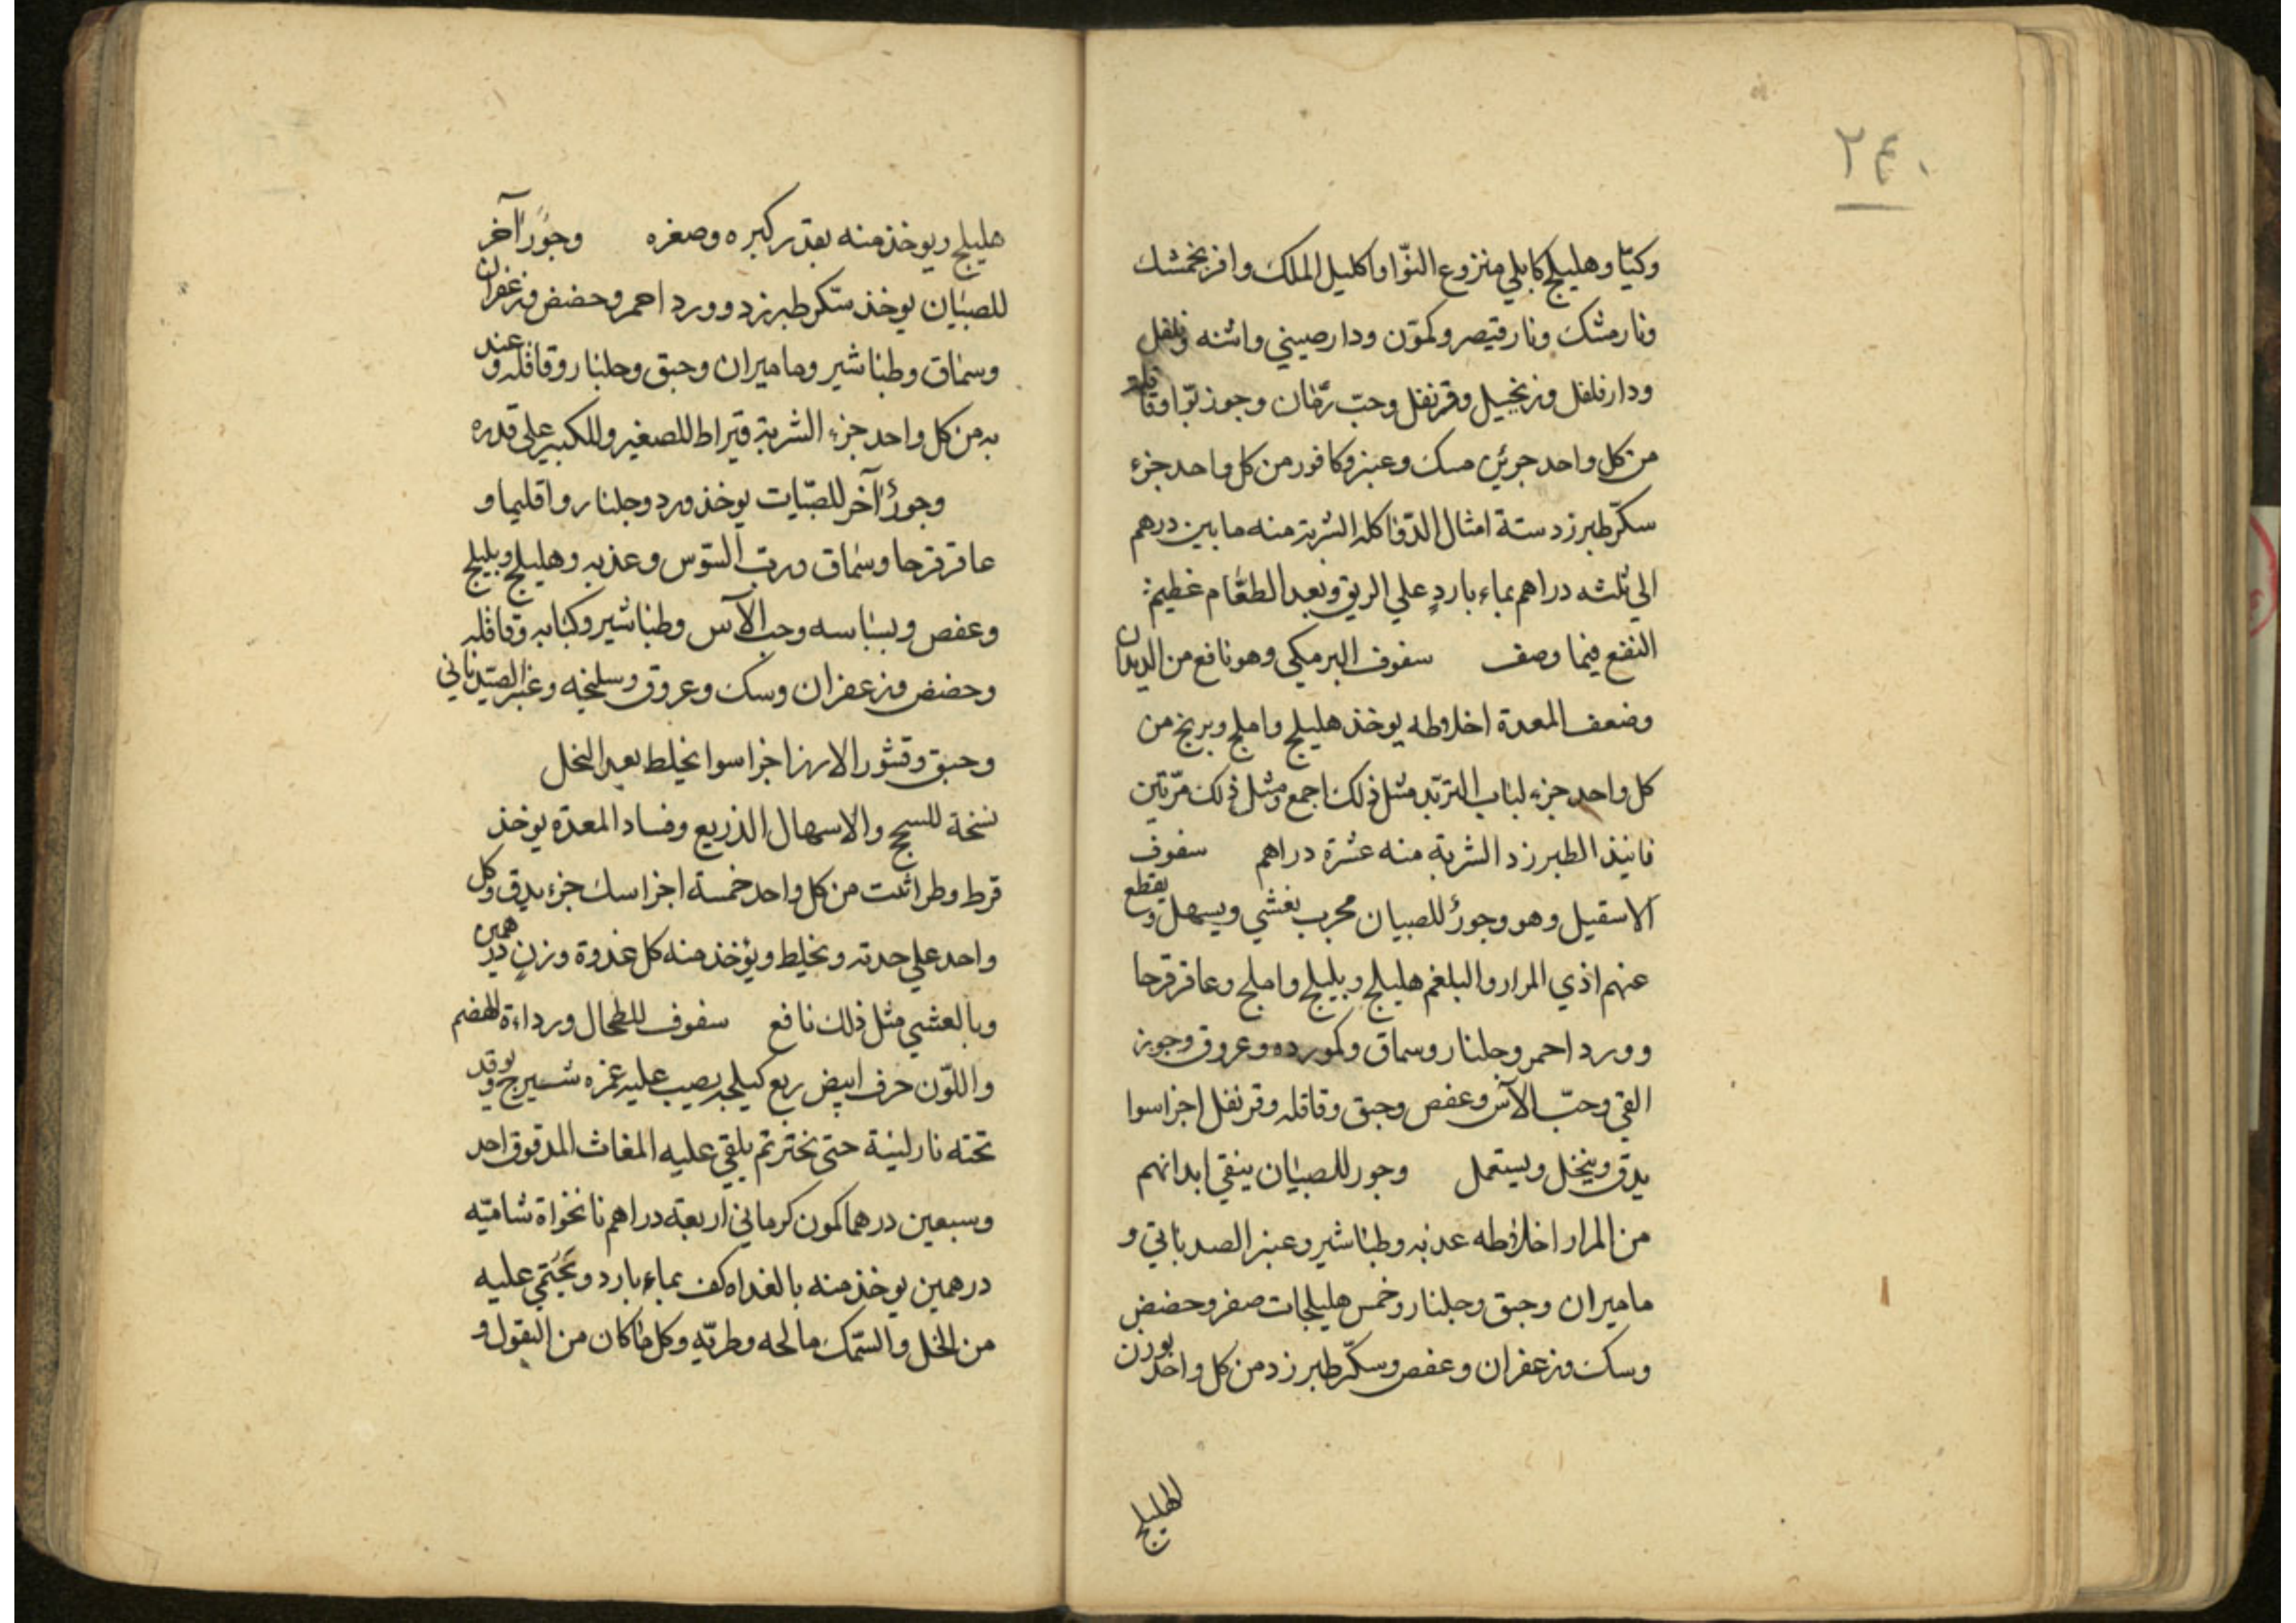 ٢٤٠
وكيّا وهليلج كابلي منزوع النوّا واكليل الملك وافرنجمشك
ونارمشك ونارقيصر وكموّن ودارصيني واشنه وفلفل
ودارفلفل وزنجبيل وقرنفل وحبّ رمّان وجوزبوّا وقاقلة
من كل واحد جوئين مسك وعنبر وكافور من كل واحد جزء
سكّر طبرزد ستة امثال الدّوا كله الشربة منه مابين درهم
الي ثلثه دراهم بماء باردٍ علي الريق وبعد الطعّام عظيم
النفع فيما وصف سفوف البرمكي وهو نافع من الديدان
وضعف المعدة اخلاطه يوخذ هليلج واملج وبرنج من
كل واحد جزء لباب التربّد مثل ذلك اجمع ومثل ذلك مرّتين
فانيذ الطبرزد الشربة منه عشرة دراهم سفوف
الاسقيل وهو وجورٌ للصبيان مجرب يغشي ويسهل ويقطع
عنهم اذي المرار والبلغم هليلج وبليلج واملج وعاقرقرحا
وورد احمر وجلنار وسماق وكمورده وعروق وجوز
القي وحبّ الآس وعفص وحبق وقاقله وقرنفل اجزا سوا
يدق وينخل ويستعمل وجور للصبيان ينقي ابدانهم
من المرار اخلاطه عذبه وطباشير وعنبر الصدباني و
ماميران وحبق وجلنار وخمس هليلجات صفر وحضض
وسك وزعفران وعفص وسكّر طبرزد من كل واحد بوزن
الهليلج
هليلج ويوخذ منه بقدر كبره وصغره وجورٌ آخر
للصبيان يوخذ سكّر طبرزد وورد احمر وحضض وزعفران
وسماق وطباشير وماميران وحبق وجلنار وقاقله وعذ
به من كل واحد جزء الشربة قيراط للصغير وللكبير علي قدره
وجورٌ آخر للصبّيات يوخذ ورد وجلنار واقليما و
عاقرقرحا وسماق ورب السّوس وعذبه وهليلج وبليلج
وعفص وبسباسه وحب الآس وطباشير وكبابه وقاقله
وحضض وزعفران وسك وعروق وسليخه وعنبر الصّيدناني
وحبق وقشور الارز اجزا سوا يخلط بعد النخل
نسخة للسحج والاسهال الذريع وفساد المعدة يوخذ
قرط وطراثيث من كل واحد خمسة اجزا سك جزء يدق وكل
واحد علي حدته ويخلط ويؤخذ منه كل غدوة وزن درهمين
وبالعشي مثل ذلك نافع سفوف للطحال ورداءة الهضم
واللوّن حرف ابيض ربع كيلجه يصب عليه غمره شيرج ويوقد
تحته نار لينة حتي يختر ثم يلقي عليه المغاث المدقوق احد
وسبعين درهما كمون كرماني اربعة دراهم نانخواة شاميّه
درهمين يوخذ منه بالغداه كف بماء بارد ويحتمي عليه
من الخل والسّمك مالحه وطريّه وكل ماكان من البقول و